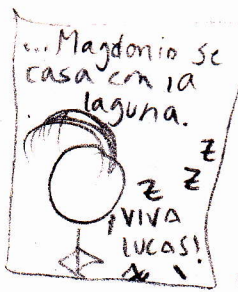 ... Magdonio se
casa con la
laguna.
Z
Z
Z
¡VIVA
LUCAS!